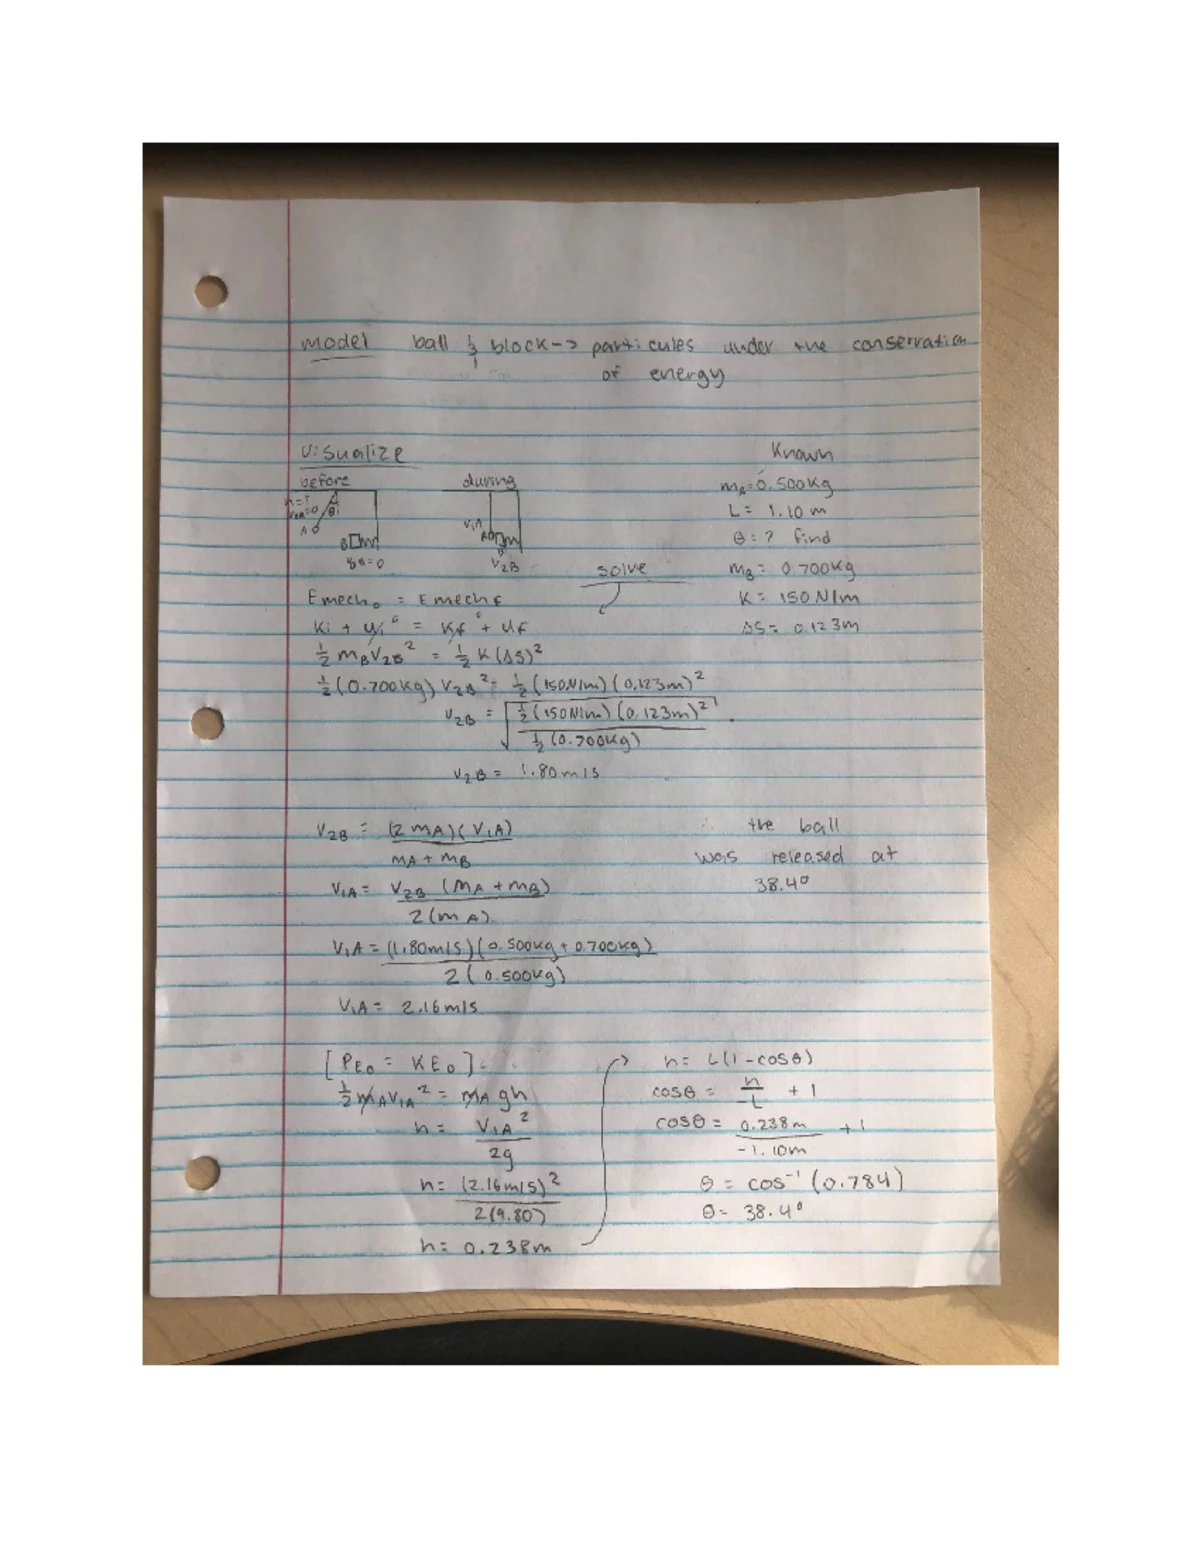 model ball & block -> particules under the conservation
of energy
Visualize
before
during
h=?
V0A=0
θi
A
B
V0B=0
V1A
A
B
V2B
Known
mA=0.500kg
L= 1.10 m
θ = ? find
mB= 0.700kg
K= 150 N/m
ΔS= 0.123m
solve
Emech0 = Emechf
Ki + Ui 0 = Kf 0 + Uf
1/2 mBV2B² = 1/2 K(ΔS)²
1/2(0.700kg) V2B² = 1/2(150N/m)(0.123m)²
V2B = √(1/2(150N/m)(0.123m)² / 1/2(0.700kg))
V2B = 1.80m/s
V2B = (2mA)(V1A) / mA + mB
V1A = V2B (mA + mB) / 2(mA)
V1A = (1.80m/s)(0.500kg + 0.700kg) / 2(0.500kg)
V1A = 2.16m/s
∴ the ball
was released at
38.4°
[PE0 = KE0]
1/2 mAV1A² = mA gh
h = V1A² / 2g
h = (2.16m/s)² / 2(9.80)
h = 0.238m
h = L(1-cosθ)
cosθ = h / -L + 1
cosθ = 0.238m / -1.10m + 1
θ = cos⁻¹ (0.784)
θ = 38.4°